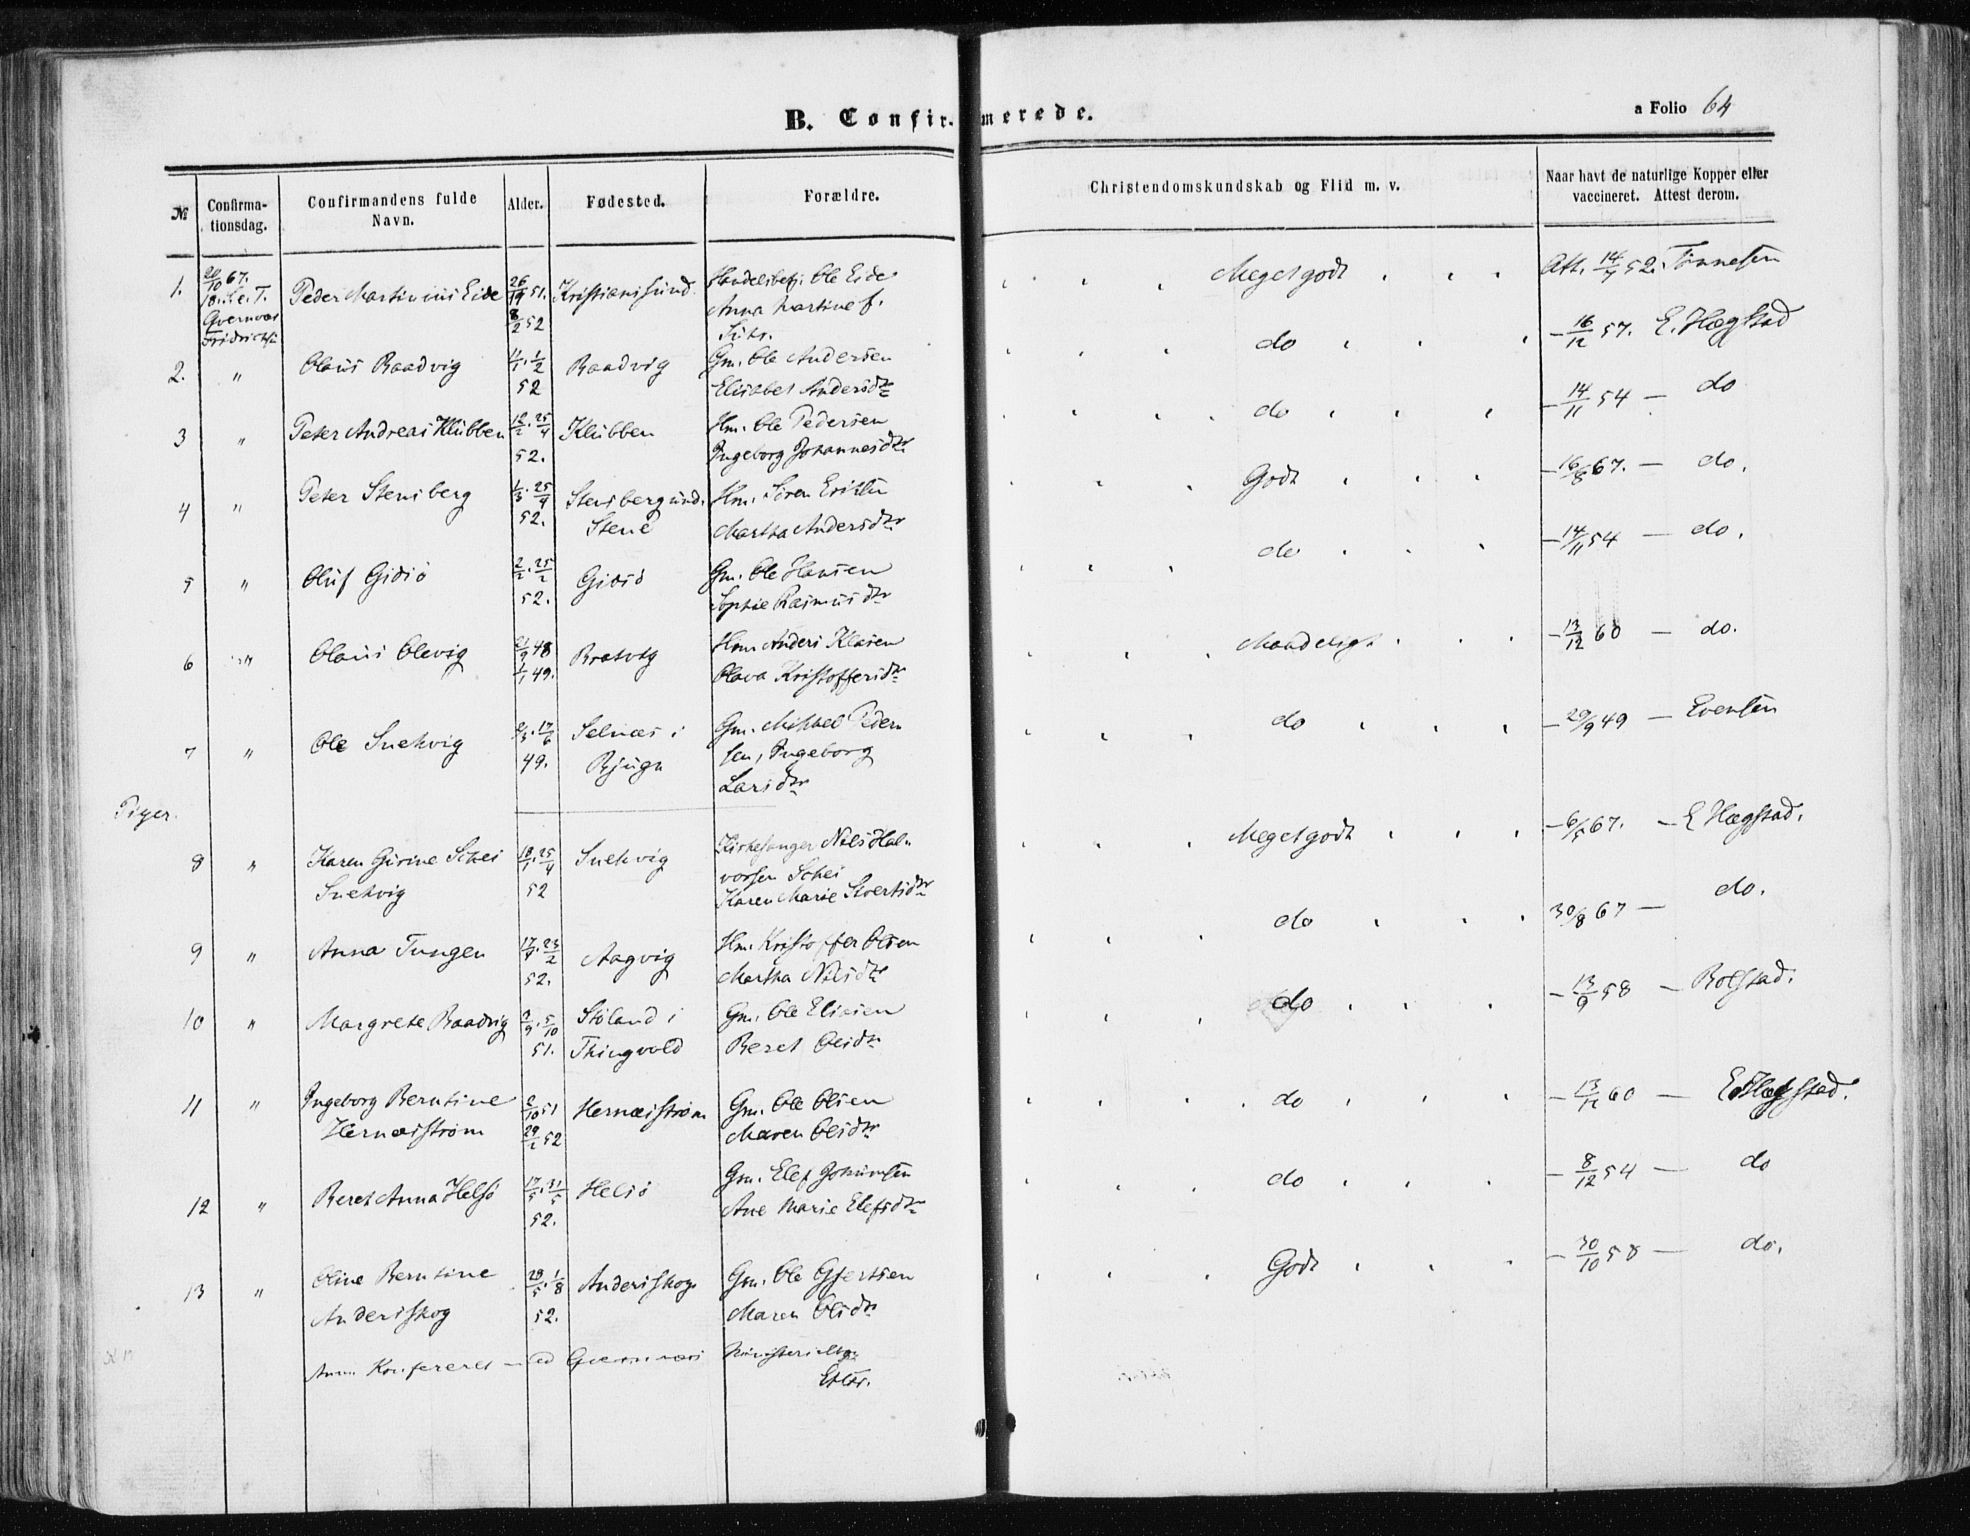 B. Confirmerede.
a Folio 64
№ Confirmationsdag. Confirmandens fulde Navn. Alder. Fødested. Forældre. Christendomskundskab og Flid m. v. Naar havt de naturlige Kopper eller vaccineret. Attest derom.
1. 20/10 67. 18. S. e. T. Qvernvæs Peder Martinius Eide 26/ 51. 8/2 52 Kristiansund. Ole Eide Anna Martine Meget godt Att. 14/ 52. Tønnesen
2. " Olaus Baadvig 11/1 . 1/2 52 Baadvig Gm. Ole Andersen Elisabet Andersdtr do - 16/12 57. E. Hægstad
3 " Peter Andreas Klubben 12/2 . 25/4 52. Klubben Hm. Ole Pedersen Ingeborg Johannesdtr. do - 14/11 54 - do
4 " Peter Stensberg 1/3 . 25/4 52. Stensberg und. Stene Hm. Søren Martha Andersdtr Godt - 16/8 67. - do.
5 " Oluf Gidsø 2/2 . 25/2 52. Gidsø Gm. Ole Hansen Sophie Rasmusdtr do - 14/11 54 - do.
6 " Olaus Olevig 21/9 48 1/1 49. Bratvig Hm Anders Klasen Olava Kristoffersdtr Maadeligt - 13/12 60 - do.
7 " Ole Snekvig 17/6 49. Selnæs i Bjugn Gm. Mikkel Pedersen, Ingeborg Larsdtr do - 29/9 49 - Evensen
Piger.
8 " Karen Girine Schei Snekvig 18/1 . 25/4 52 Snekvig Kirkesanger Nils Halvorsen Schei Karen Marie Sivertsdtr Meget godt - 6/5 67. - E Hægstad.
9 " Anna Tungen 17/ . 23/2 52. Aagvig Hm. Kristoffer Olsen Martha Nilsdtr do 30/8 67 - do.
10 " Margrete Baadvig 2/9 . 5/10 51. Støland i Thingvold Gm. Ole Eliasen Beret Olsdtr do - 13/9 58 - Bolstad.
11 " Ingeborg Berntine Hernæsstrøm 2/10 51 29/2 52 Hernæsstrøm Gm. Ole Olsen Maren Olsdtr do - 13/12 60 - E. Hægstad.
12 " Beret Anna Helsø 17/5 . 31/5 52. Helsø Gm. Elef Ane Marie Elefsdtr do - 8/12 54 - do
13 " Oline Berntine Andersskog 28/5 . 1/8 52. Andersskog Gm. Ole Gjertsen Maren Olsdtr Godt - 30/10 58 - do.
Anm. Konfereret Ministerialbog